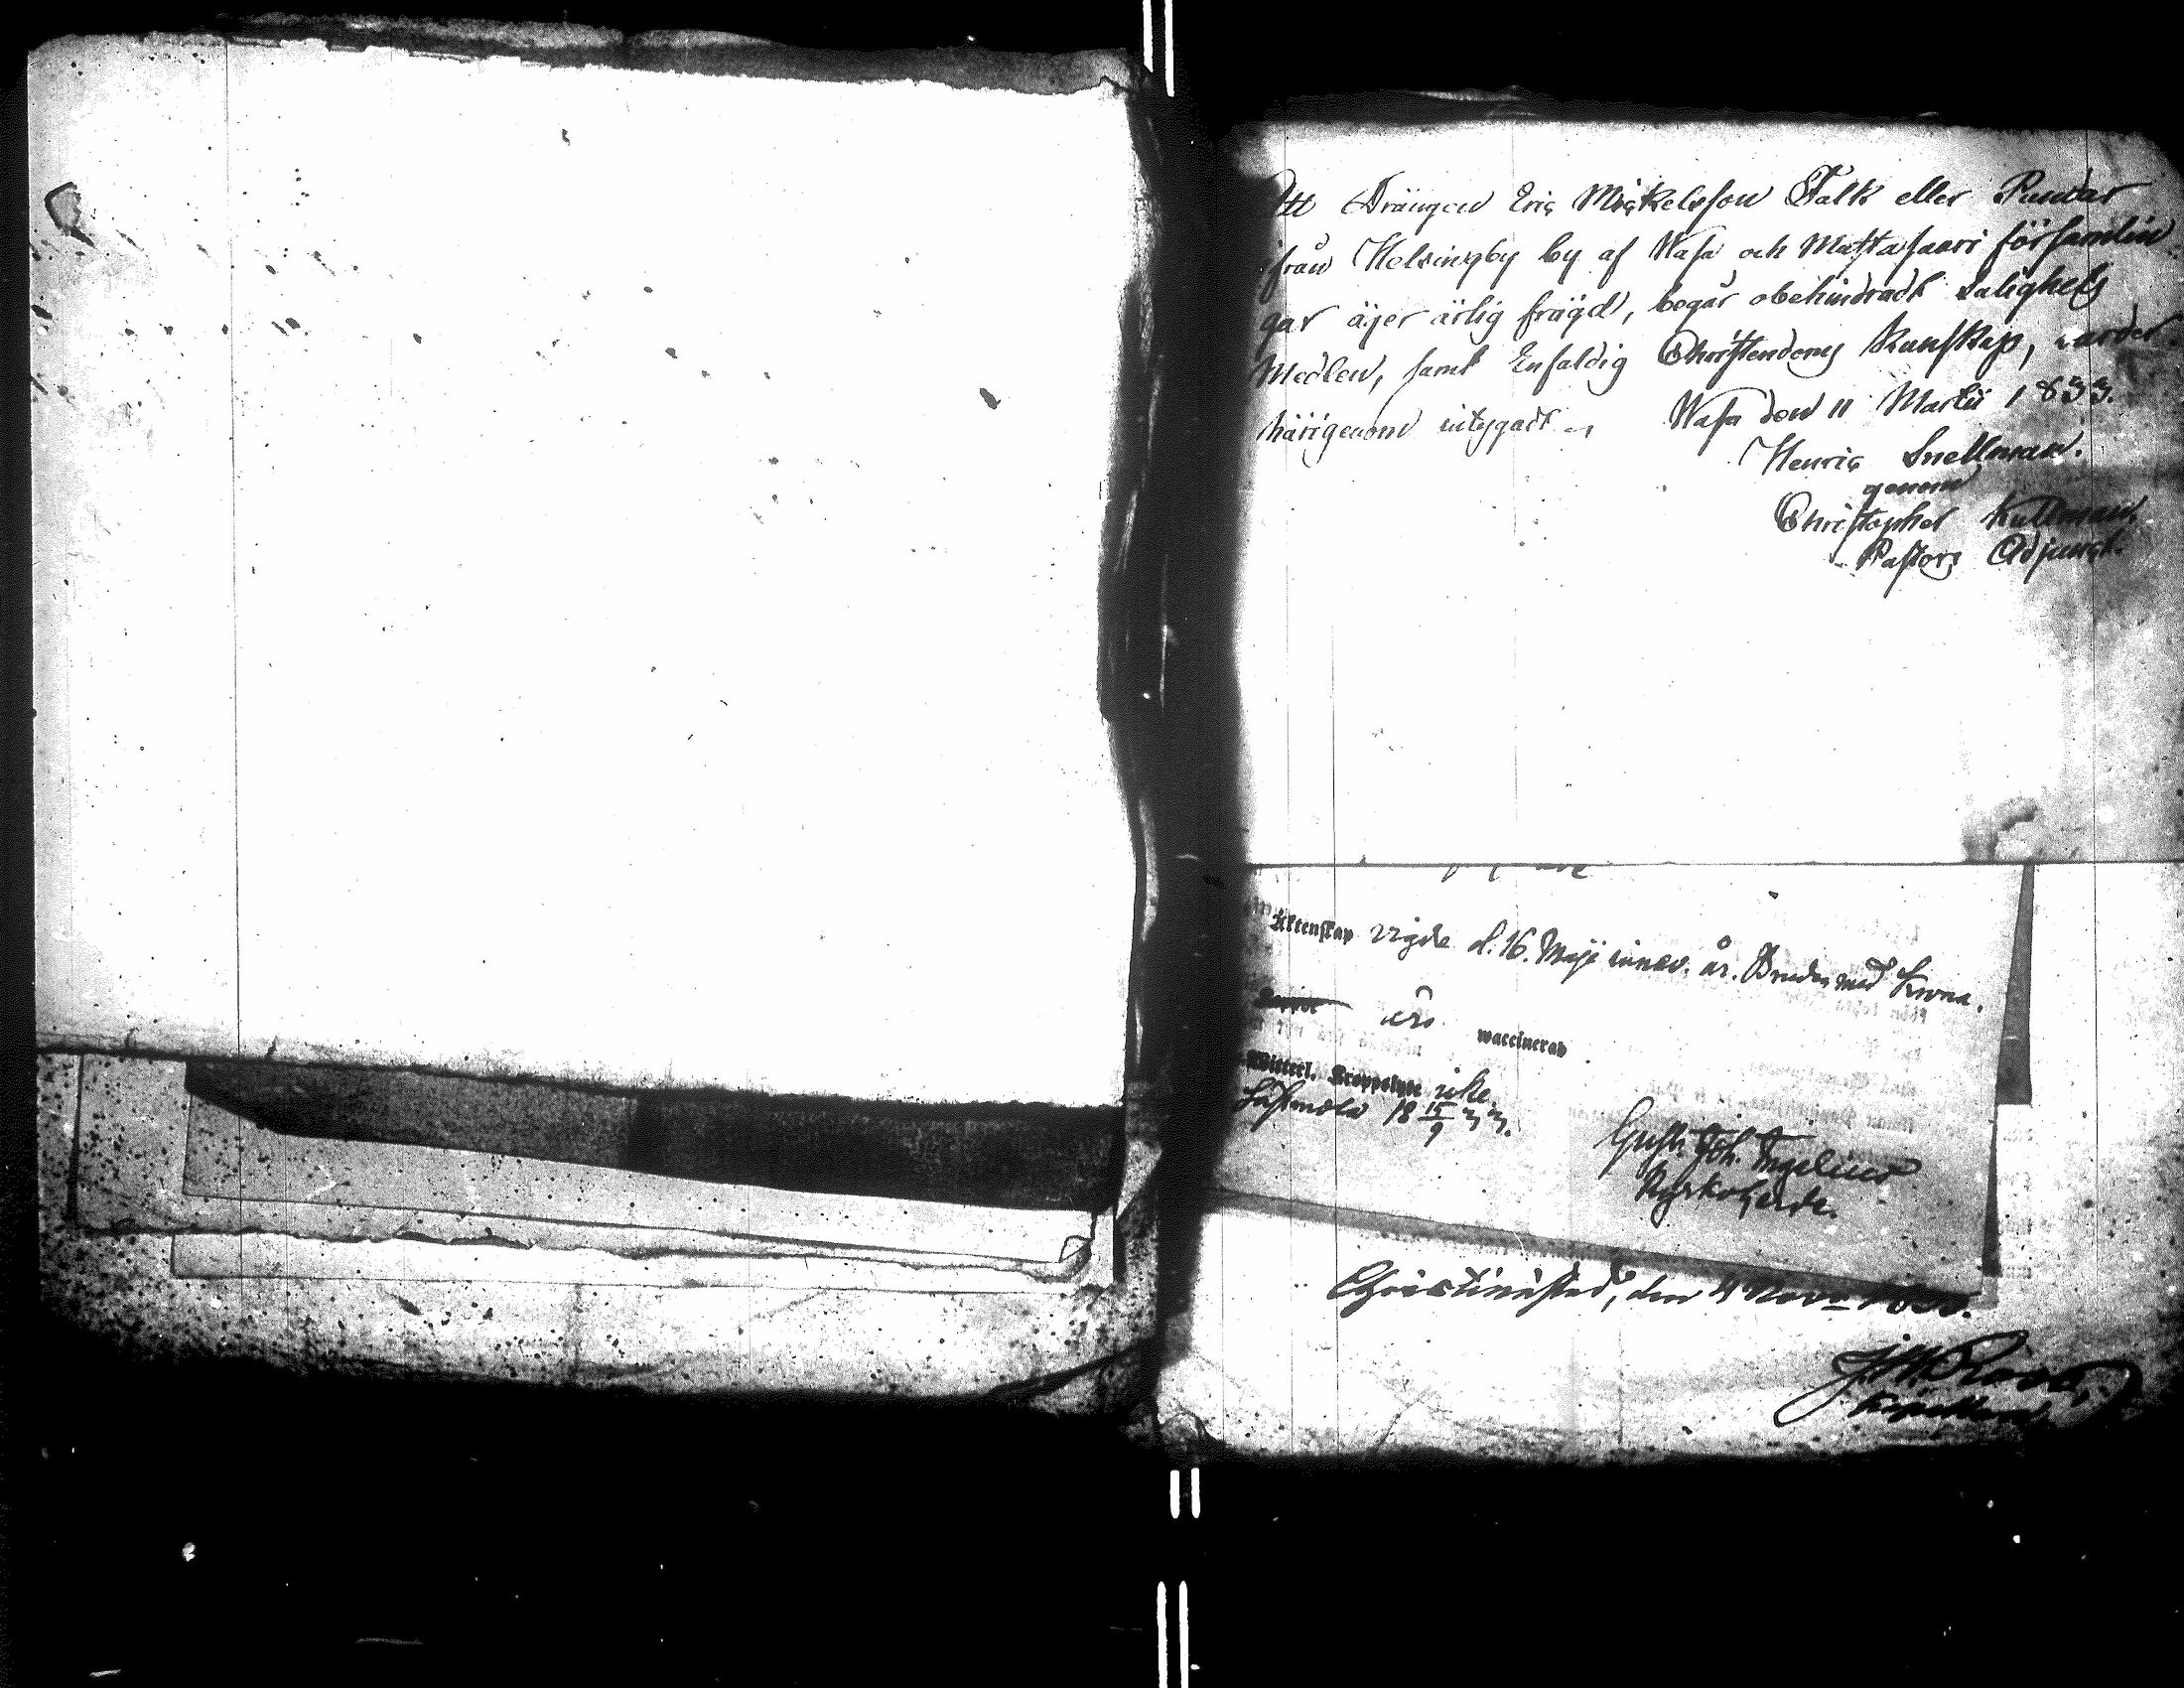 Att Drängen Eric Mickelsson Falk eller Pundar
ifrån Helsingby by af Wasa och Mustasaari församlin
gar äger ärlig frägd, begår obehindradt Salighets
Medlen, samt Enfaldig Christendoms Kunskap, warder
härigenom intygadt. Wasa den 11 Martii 1833.
Henric Snellman.
genom
Christopher Kullman.
Pastors Adjunct.
Äktenskap vigde d. 16. Maji innev. år. Bruden med Krona.
är
waccinerad
Witterl. Kroppslyte icke.
18 15/9 33.
Gust. Joh. Ingelius
Kyrkoherde.
Christinestad, den 4 Nov.
Kapellan